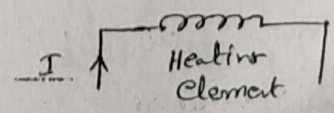 I
Heating
Element